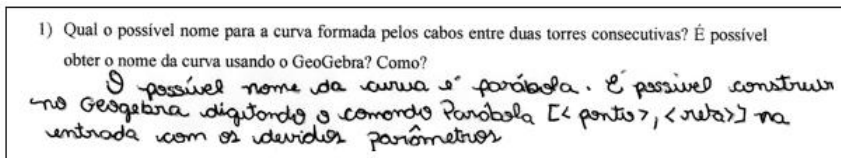 1) Qual o possível nome para a curva formada pelos cabos entre duas torres consecutivas? É possível
obter o nome da curva usando o GeoGebra? Como?
O possível nome da curva é parábola. É possível construir
no Geogebra digitando o comando Parábola [< ponto >, < reta >] na
entrada com os devidos parâmetros